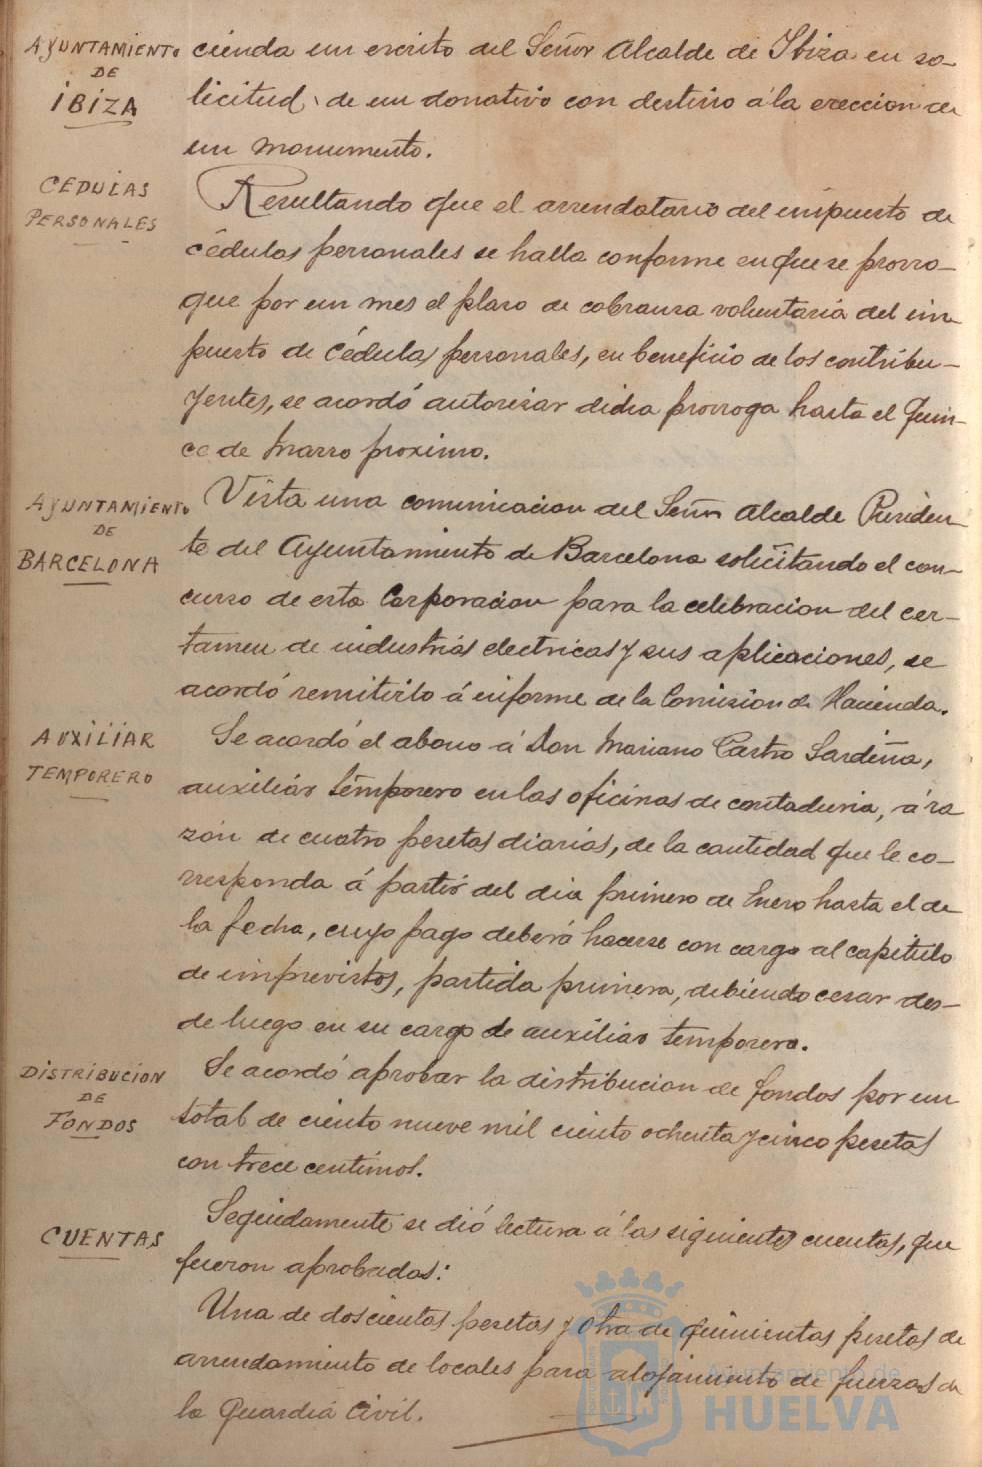 AYUNTAMIENTO
DE
IBIZA
cienda un escrito del Señor Alcalde de Ibiza en so-
licitud, de un donativo con destino á la ereccion de
un monumento.
CEDULAS
PERSONALES
Resultando que el arrendatario del impuesto de
cédulas personales se halla conforme en que se prorro-
gue por un mes el plazo de cobranza voluntaria del im-
puesto de Cédulas personales, en beneficio de los contribu-
yentes, se acordó autorizar dicha prorroga hasta el quin-
ce de Marzo proximo.
AYUNTAMIENTO
DE
BARCELONA
Vista una comunicacion del Señor Alcalde Presiden-
te del Ayuntamiento de Barcelona solicitando el con-
curso de esta Corporacion para la celebracion del cer-
tamen de industrias electricas y sus aplicaciones, se
acordó remitirlo á informe de la Comision de Hacienda.
AUXILIAR
TEMPORERO
Se acordó el abono á Don Mariano Castro Sardiña,
auxiliar temporero en las oficinas de contaduria, á ra
zón de cuatro pesetas diarias, de la cantidad que le co-
rresponda á partir del dia primero de Enero hasta el de
la fecha, cuyo pago deberá hacerse con cargo al capitulo
de imprevistos, partida primera, debiendo cesar des-
de luego en su cargo de auxiliar temporero.
DISTRIBUCION
DE
FONDOS
Se acordó aprobar la distribucion de fondos por un
total de ciento nueve mil ciento ochenta y cinco pesetas
con trece centimos.
CUENTAS
Seguidamente se dió lectura á las siguientes cuentas, que
fueron aprobadas:
Una de doscientas pesetas y otra de quinientas pesetas de
arrendamiento de locales para alojamiento de fuerzas de
la Guardia Civil.
Ayuntamiento de
HUELVA